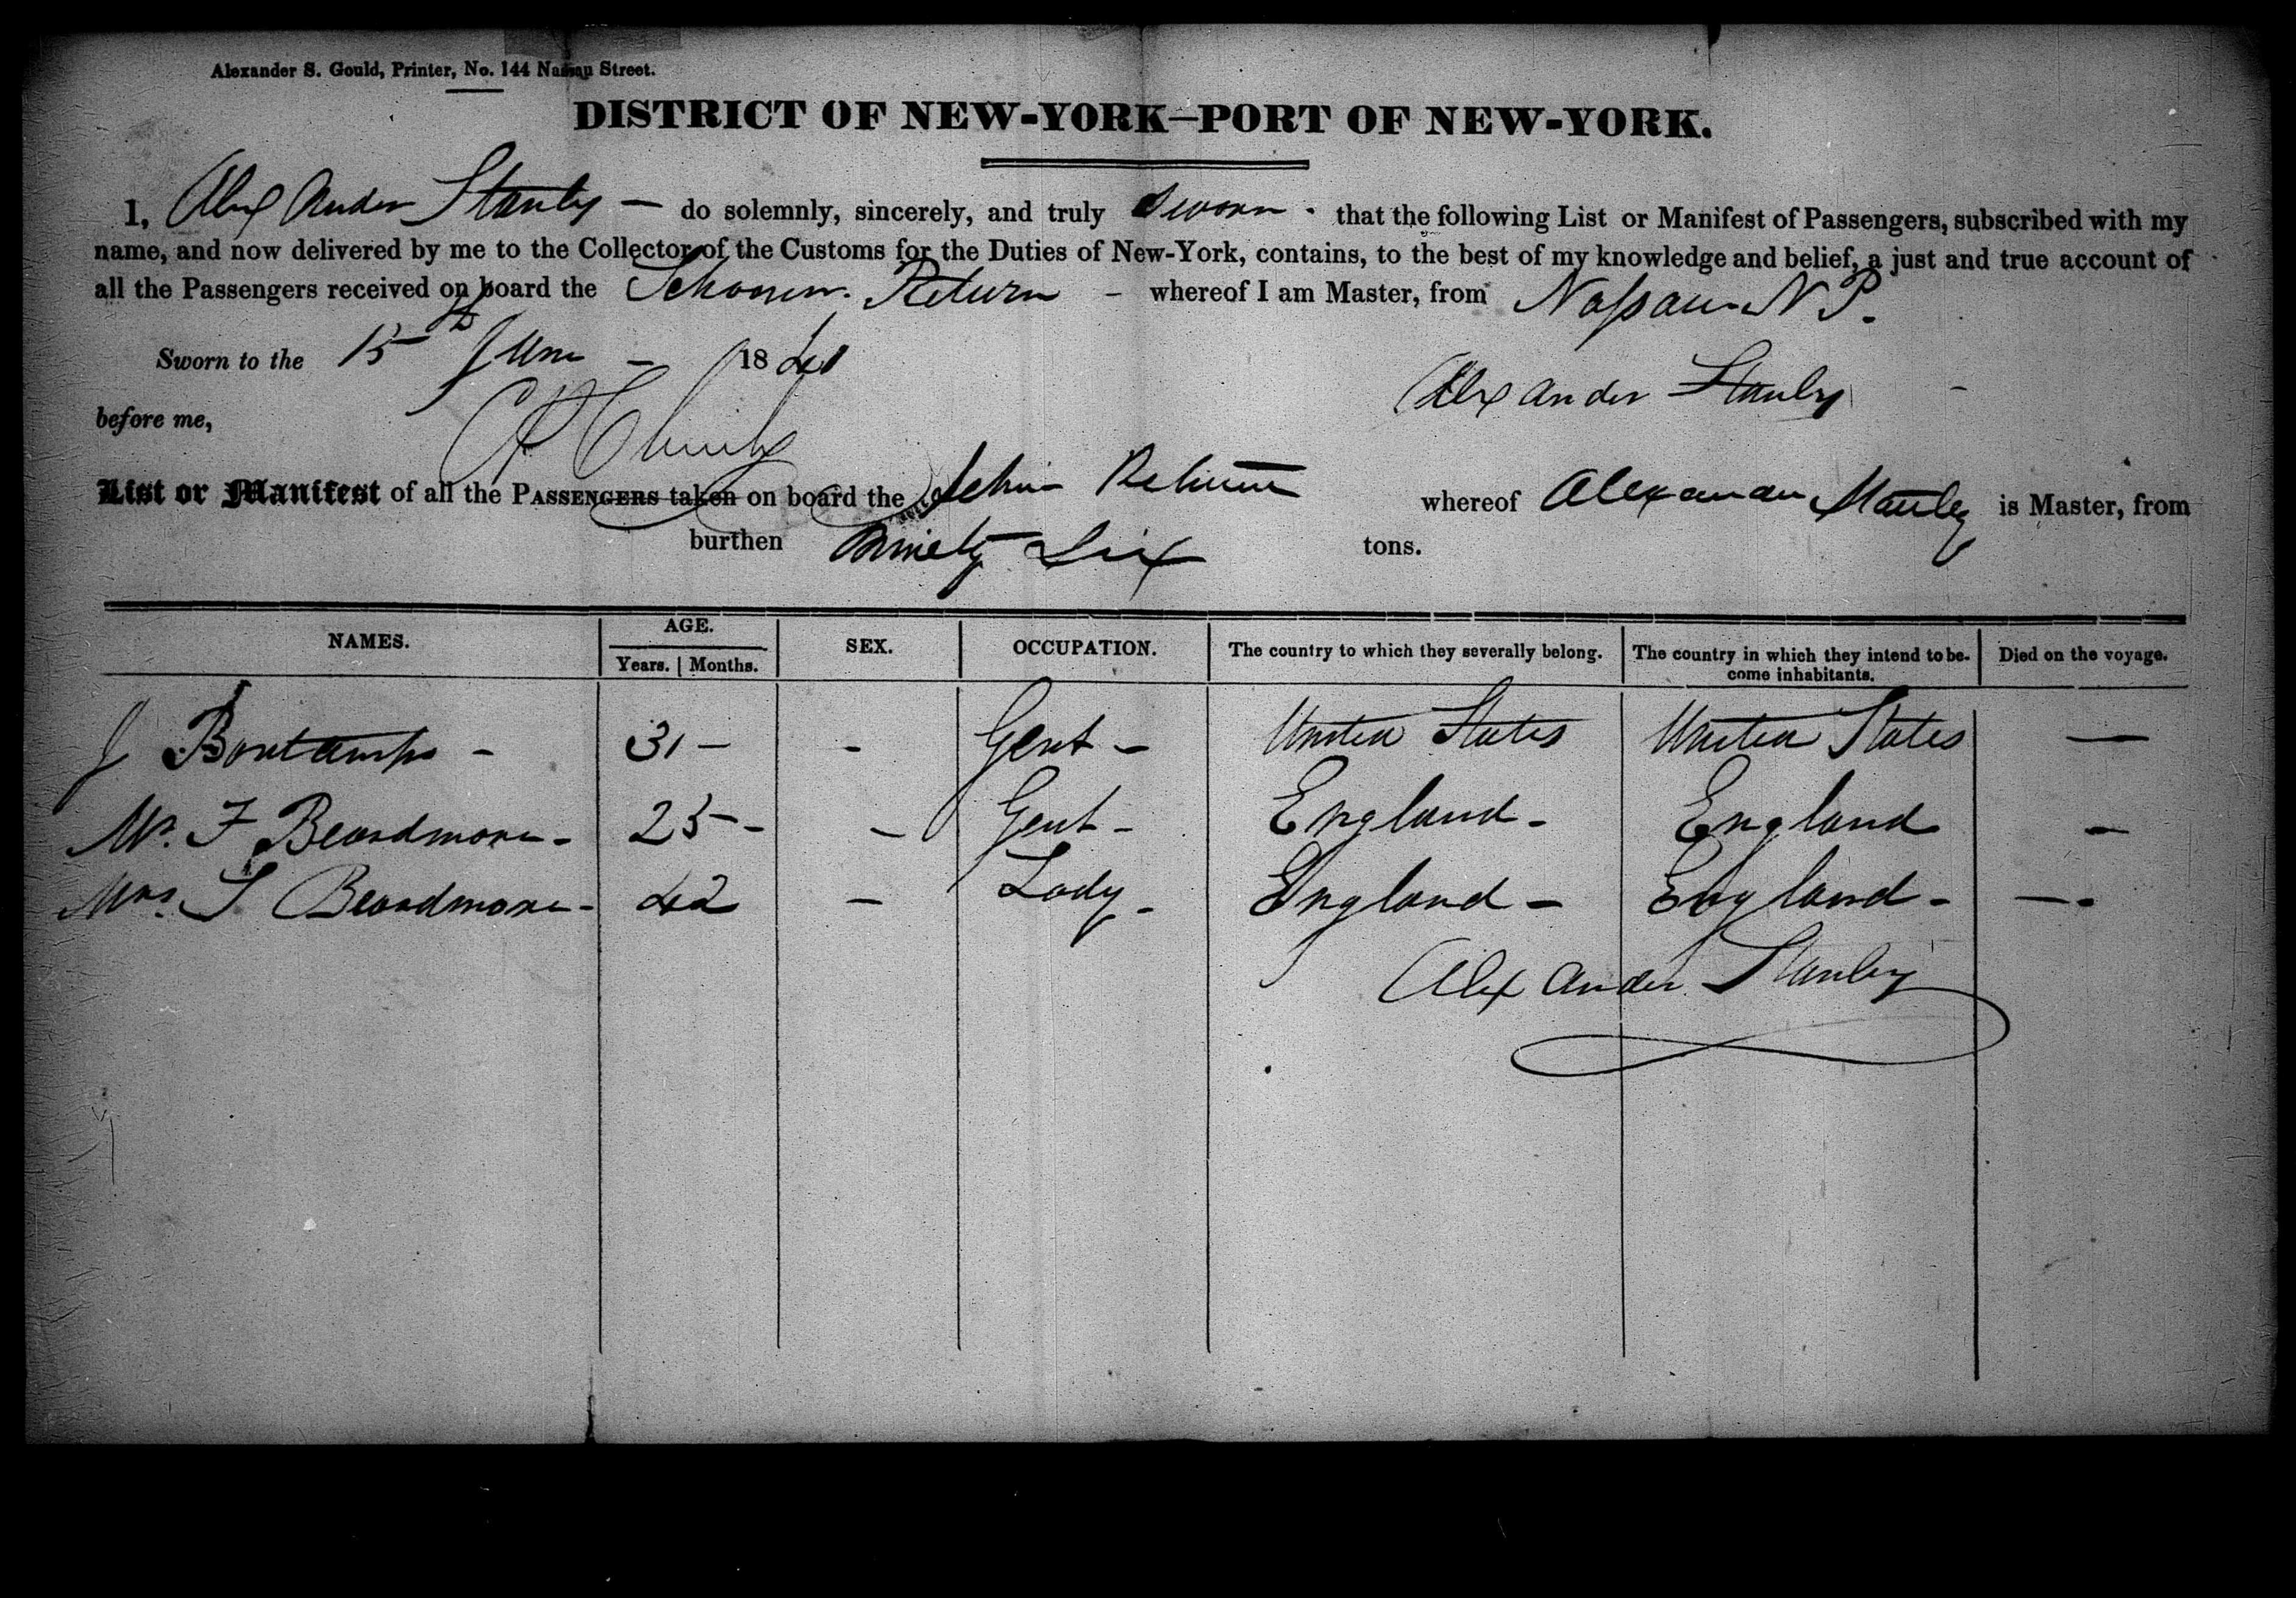 Alexander S. Gould, Printer, No. 144 Nassau Street.
DISTRICT OF NEW-YORK—PORT OF NEW-YORK.
I, Alex Ander Stanley — do solemnly, sincerely, and truly Sworn - that the following List or Manifest of Passengers, subscribed with my
name, and now delivered by me to the Collector of the Customs for the Duties of New-York, contains, to the best of my knowledge and belief, a just and true account of
all the Passengers received on board the Schooner Return - whereof I am Master, from Nassau N P.
Sworn to the 15th June - 1841
Alex ander Stanley
before me,
List or Manifest of all the PASSENGERS taken on board the Schr Return whereof Alexander Stanley is Master, from
burthen Ninety Six tons.
NAMES. AGE. SEX. OCCUPATION. The country to which they severally belong. The country in which they intend to be- Died on the voyage.
Years. Months. come inhabitants.
J 31 — - Gent - United States United States —
Mr. F Beardmore - 25 - - Gent - England - England -
Mrs. S Beardmore - 42 - Lady - England - England - — -
Alex ander Stanley